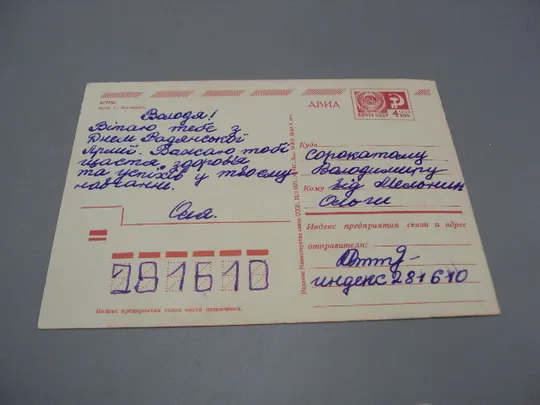 АСТРЫ
Володя!
Вітаю тебе з
Днем Радянської
Армії. Бажаю тобі
щастя, здоров'я
та успіхів у твоєму
навчанні.
Оля.
281610
Индекс предприятия связи места назначения.
АВИА
ПОЧТА СССР
4 КОП
Куда
Сорокатому
Володимиру
Кому від Мельник
Ольги
Индекс предприятия связи и адрес
отправителя:
индекс 281610